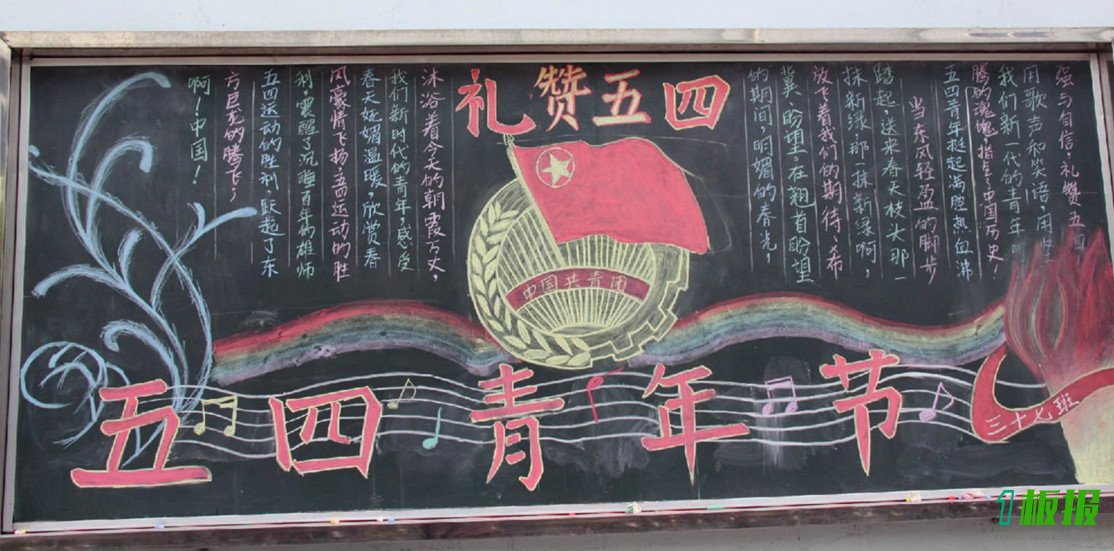 礼赞五四
强与自信,礼赞五四
用歌声和笑语,用坚
我们新一代的青年啊
腾的魂魄,指点中国历史!
五四青年挺起满腔热血沸
当东风轻盈的脚步
踏起,送来春天枝头那一
抹新绿那一抹新绿啊,
放飞着我们的期待、希
冀、盼望。在翘首盼望
的期间,明媚的春光,
沐浴着今天的朝霞万丈,
我们新时代的青年,感受
春天妩媚温暖欣赏春
风豪情飞扬五四运动的胜
利震醒了沉睡百年的雄师
五四运动的胜利,跃起了东
方巨龙的腾飞,
啊!中国!
中国共青团
五四青年节
三十七班
1板报